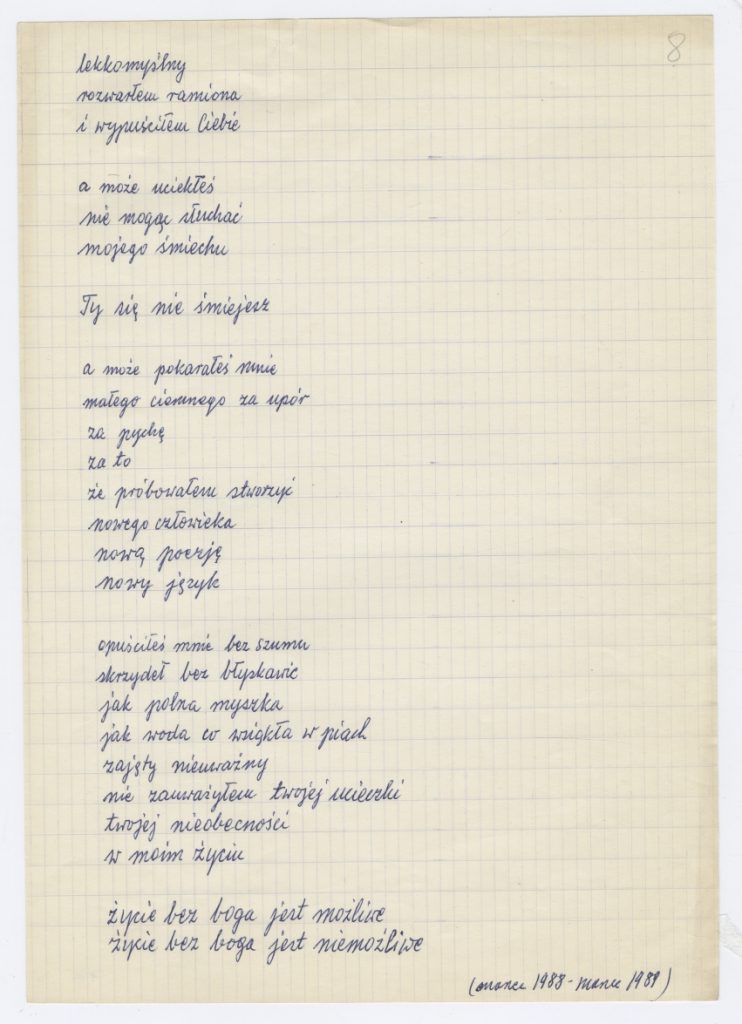 8
lekkomyślny
rozwarłem ramiona
i wypuściłem Ciebie
a może uciekłeś
nie mogąc słuchać
mojego śmiechu
Ty się nie śmiejesz
a może pokarałeś mnie
małego ciemnego za upór
za pychę
za to
że próbowałem stworzyć
nowego człowieka
nową poezję
nowy język
opuściłeś mnie bez szumu
skrzydeł bez błyskawic
jak polna myszka
jak woda co wsiąkła w piach
zajęty nieuważny
nie zauważyłem twojej ucieczki
twojej nieobecności
w moim życiu
życie bez boga jest możliwe
życie bez boga jest niemożliwe
(marzec 1988 - marzec 1989)